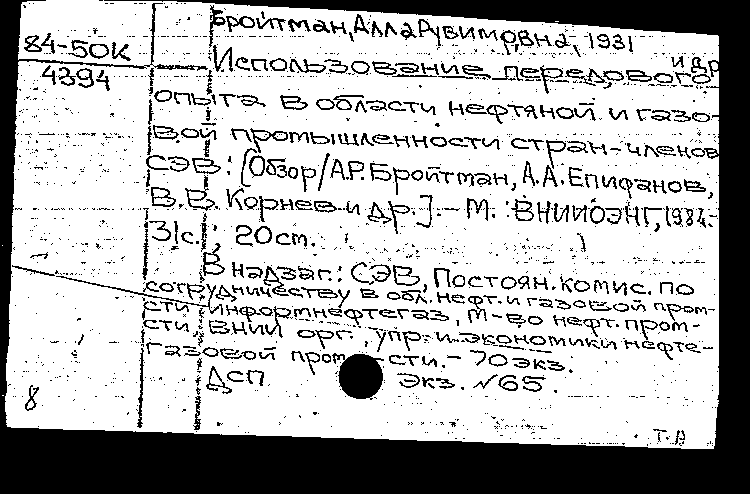 Бройтман, Алла Рувимовна, 1931
и др.
84-50К
4394
Использование передового
опыта в области нефтяной и газо-
вой промышленности стран-членов
СЭВ: [Обзор/А.Р. Бройтман, А.А. Епифанов,
В.В. Корнев и др.]. - М.: ВНИИОЭНГ, 1984.-
31с.; 20cm.
В надзаг.: СЭВ, Постоян. комис. по
сотрудничеству в обл. нефт. и газовой пром-
сти "Информнефтегаз, М-во нефт. пром-
сти, ВНИИ орг., упр. и экономики нефте-
газовой пром-сти. - 70 экз.
ДСП экз. №65.
8
Т. А